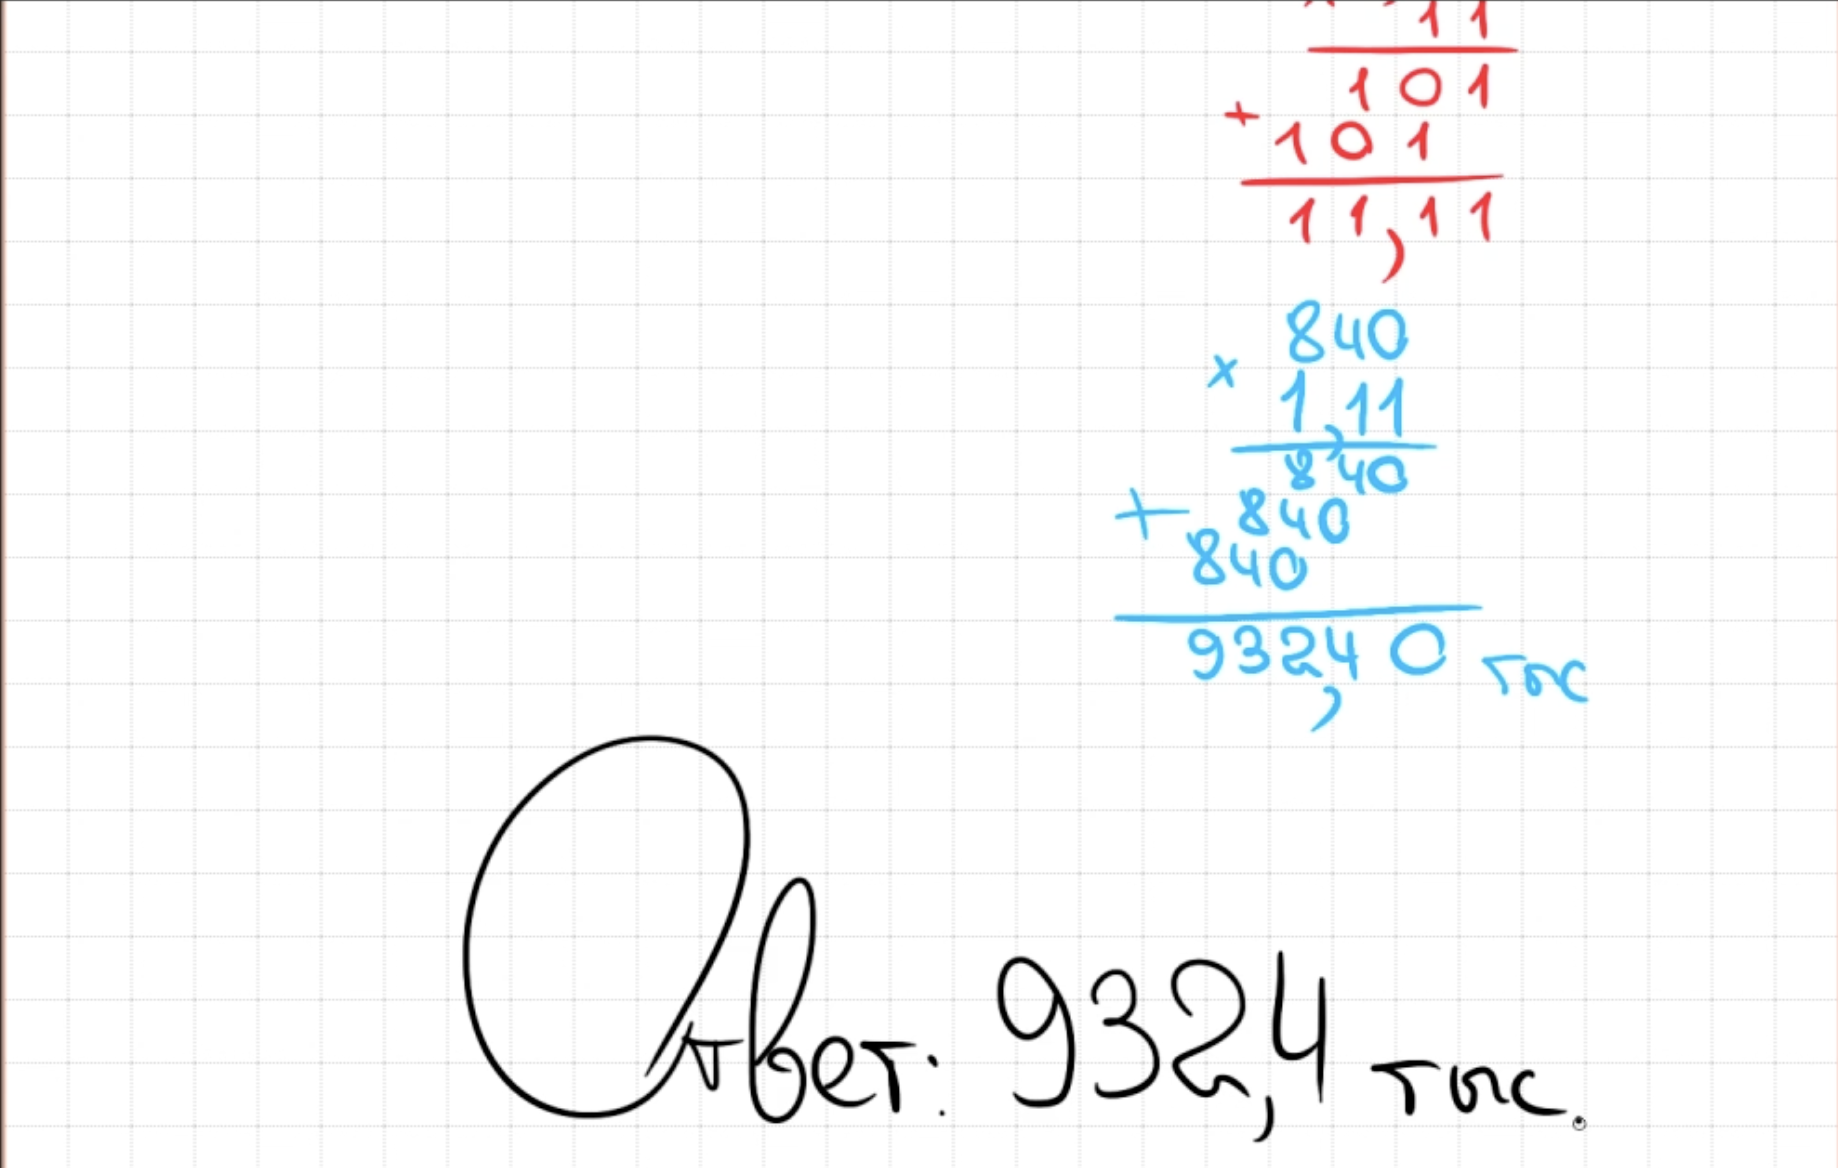 11
101
+
101
11,11
840
×
1,11
840
+ 840
840
932,40 тыс
Ответ: 932,4 тыс.